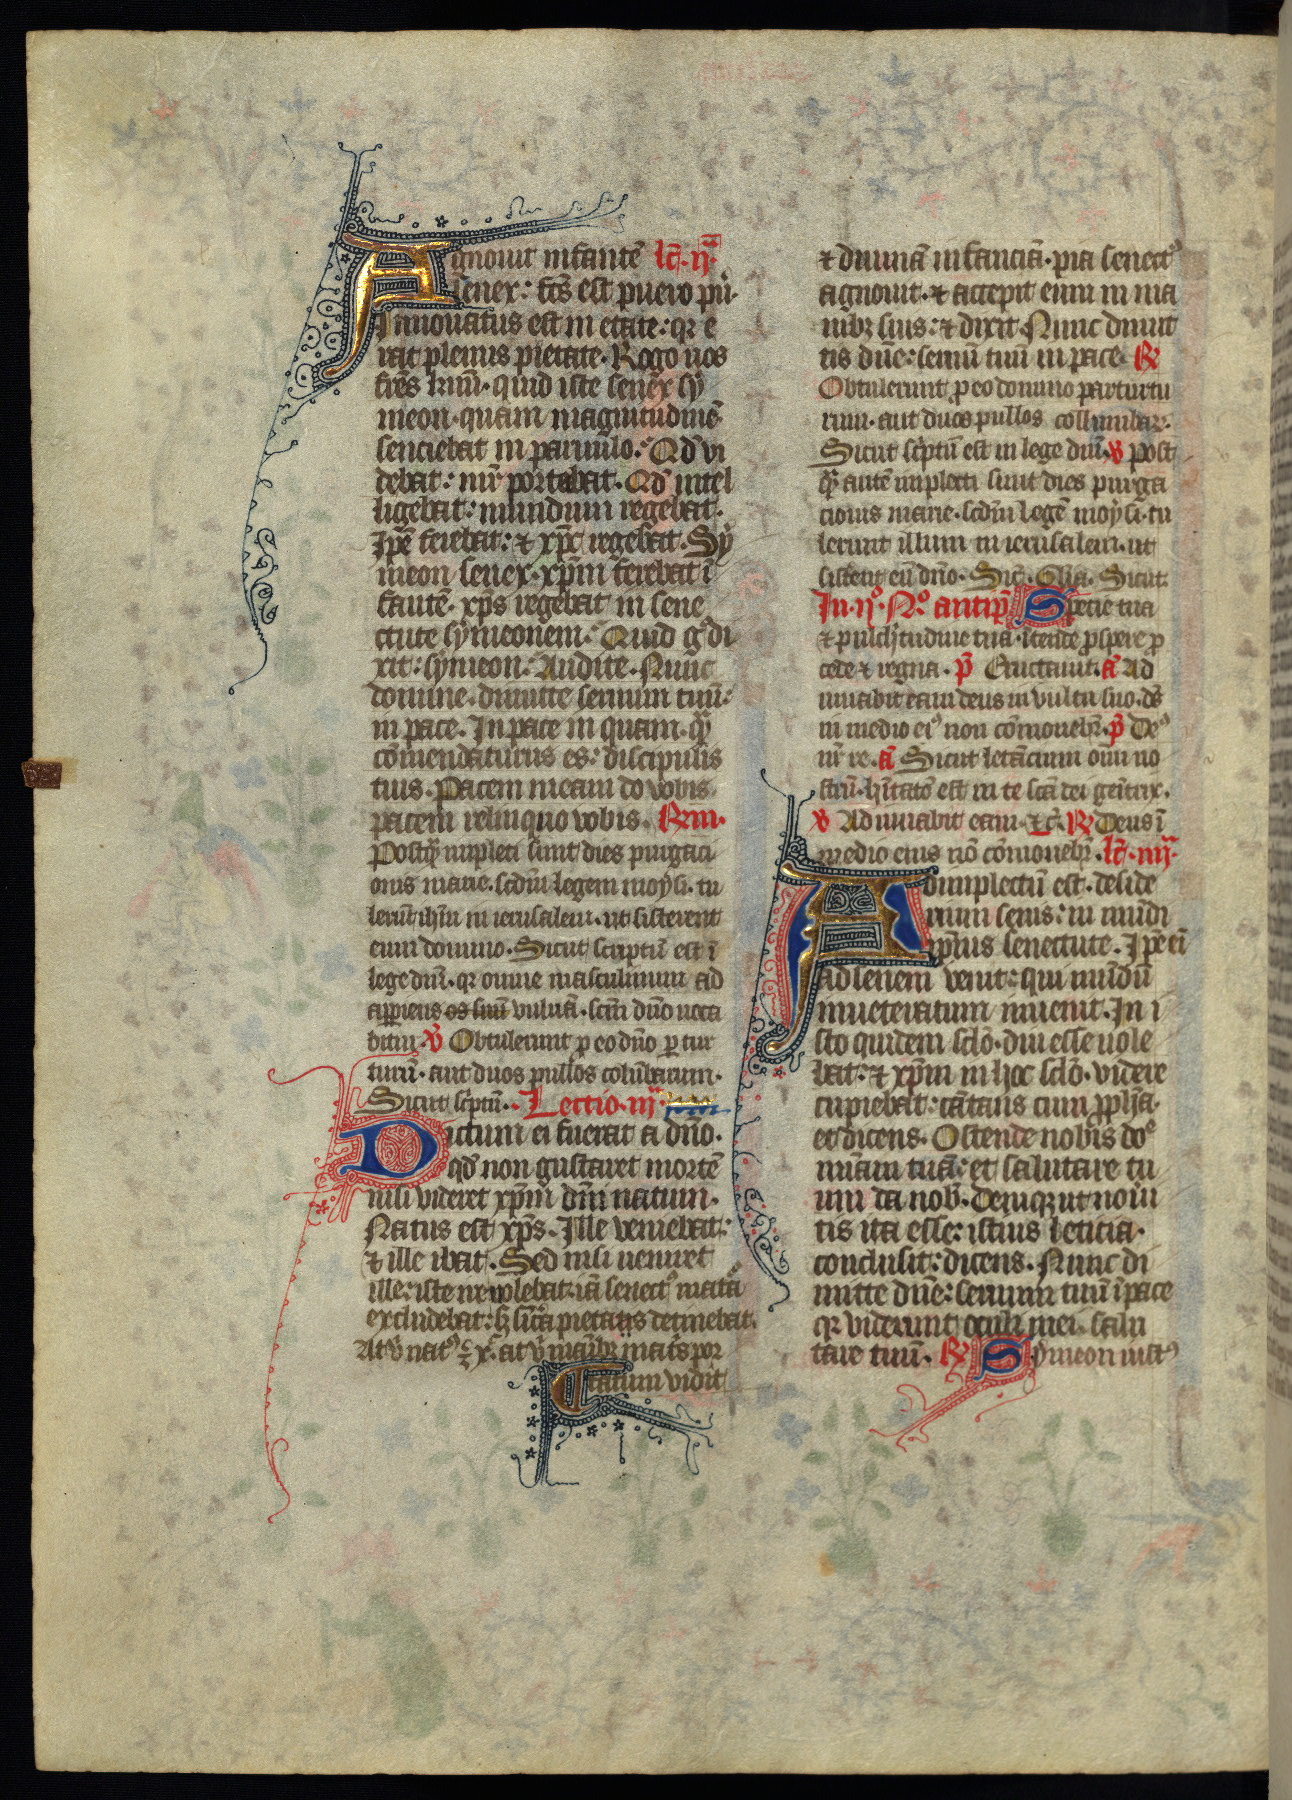 Agnouit infantē lc̄·ij·
senex: fcs̄ est puero pri·
Innouatus est in etate: qr e
rat plenus pietate. Rogo uos
frēs krmī. quid iste senex sy
meon. quam magnitudinē
senciebat in paruulo. Qd̄ vi
debat: mr̄ portabat. Qd̄ intel
ligebat: mundum regebat.
Ipē ferebat: et xpc̄ regebat. Sy
meon senex. xpm̄ ferebat ī
fantē. xps̄ regebat in sene
ctute symeonem. Quid gͦ di
xit: symeon: Audite. Nunc
domine. dimitte seruum tuū:
in pace. In pace in quam. qā
cōmendaturus es: discipulis
tuis. Pacem meam do vobis.
pacem relinquo vobis. Rm̄·
Postqͣ impleti sunt dies purgaci
onis marie. scdm̄ legem moysi. tu
lerūt ihm̄ in ierusalem. ut sisterent
eum domino. Sicut scriptum est ī
lege dnī. qr omne masculinum ad
apperiens os suū vuluā. scm̄ dn̄o uoca
bitur. v Obtulerunt ꝓ eo dn̄o par tur
turū. aut duos pullos colūbarum.
Sicut scptū. Lectio·iij·
Dictum ei fuerat a dn̄o.
qd̄ non gustaret mortē
nisi videret xpm̄ dm̄ natum.
Natus est xps̄. Ille veniebat:
et ille ibat. Sed nisi ueniret
ille: iste nec volebat. iā senectꝰ matā
excludebat: sꝫ sūta pietatis detinebat.
At v̄ natꝰ ē x̄c. at v̄ manibꝫ matis por
tatum vidit
et diuinā infanciā. pia senectꝰ
agnouit. et accepit eum in ma
nibꝫ suis: et dixit Nunc dimit
tis dnē: seruū tuū in pace. R
Obtulerunt ꝓ eo domino par turtu
rum. aut duos pullos collumbar.
Sicut scptū est in lege dnī. v post
qͣ autē impleti sunt dies purga
cionis marie. scdm̄ legē moysi. tu
lerunt illum in ierusalem. ut
sisterēt eū dn̄o. Sic̄. Glīa. Sicut.
In·ijͦ·Nͦ antipͣ Specie tua
et pulchritudine tua. ītende ꝓspere ꝓ
cede et regna. p̄ Eructauit. ā Ad
iuuabit eam deus in vultu suo. ds̄
in medio eiꝰ non cōmouebr̄. p̄ Deꝰ
nr̄ re. ā Sicut letācium oīm no
strū. hītatō est in te scā dei genitrix.
v Adiuuabit eam. etc̄. R Deus ī
medio eius nō cōmouebr̄. lc̄·iiij·
Adimplectū est. deside
rium senis: in mūdi
ipsius senectute. Ipē eī
ad senem venit: qui mūdū
inueteratum inuenit. In i
sto quidem sclō. diu esse nole
bat: et xpm̄ in hoc sclō. videre
cupiebat: cātans cum ꝓpha.
et dicens. Ostende nobis doe
m̄iam tuā: et salutare tu
um da nob. Deniqꝫ ut noui
tis ita esse: istius leticia.
conclusit: dicens. Nunc di
mitte dnē: seruum tuū ī pace
qr viderunt oculi mei. salu
tare tuū. R Symeon iustꝰ